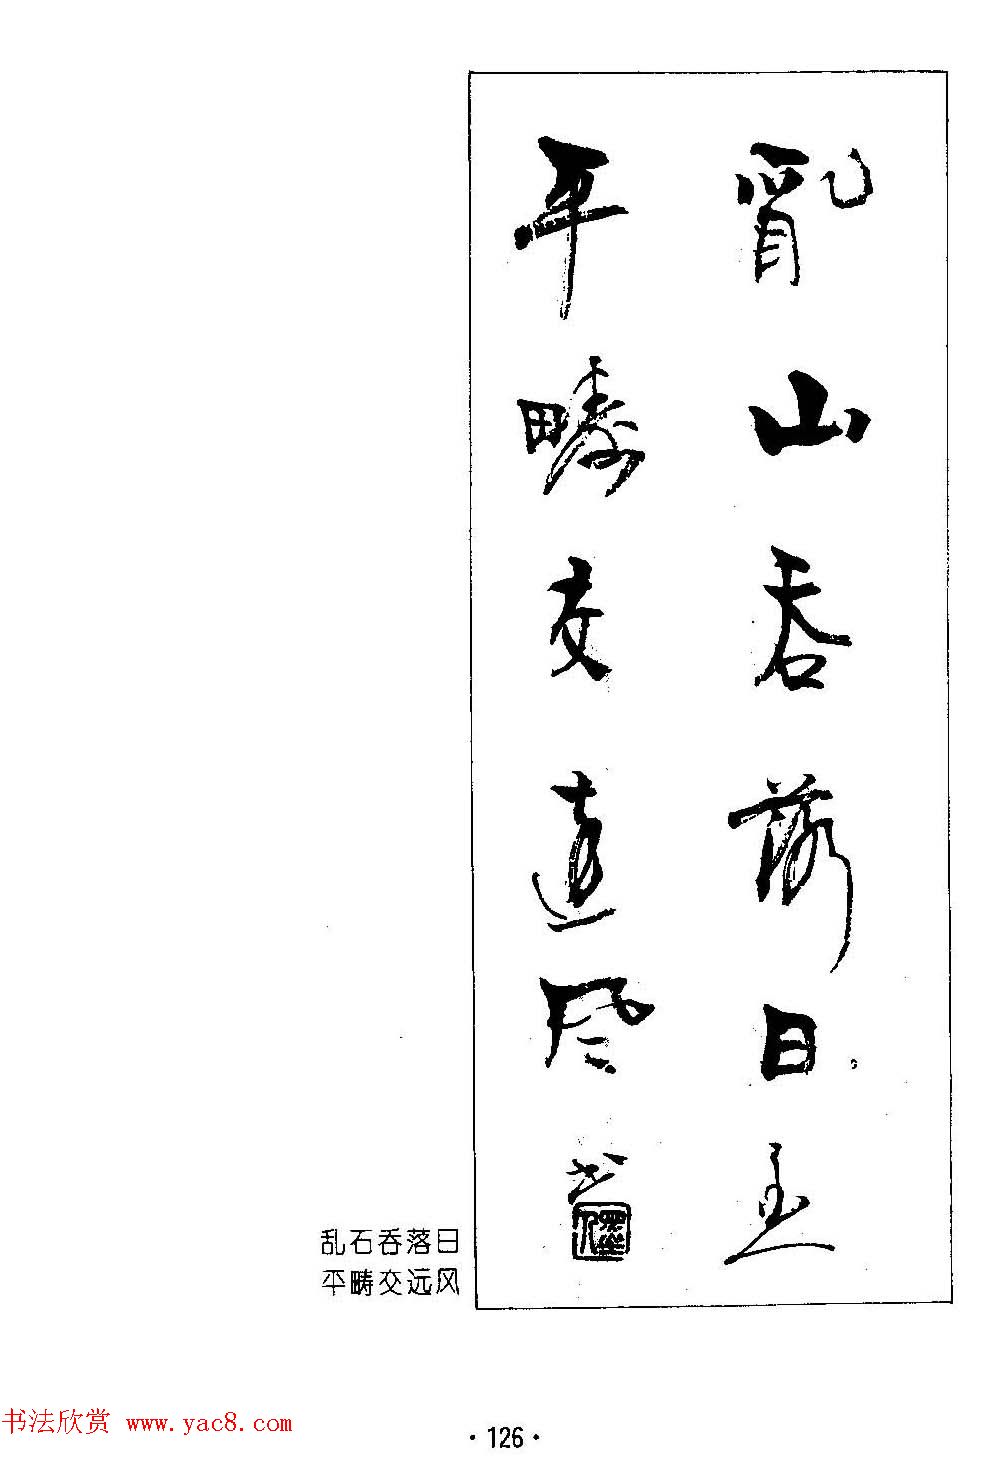 亂山吞落日
平疇交遠风
乱石吞落日
平畴交远风
书法欣赏 www.yac8.com
·126·